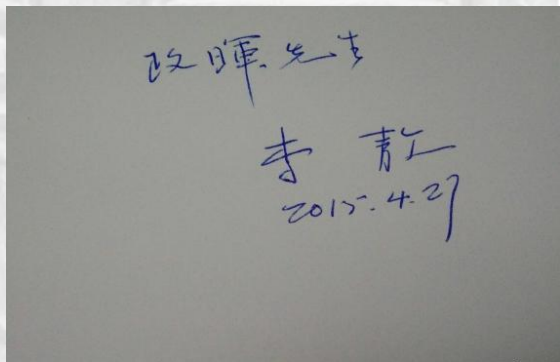 政暉先生
李静
2015.4.27